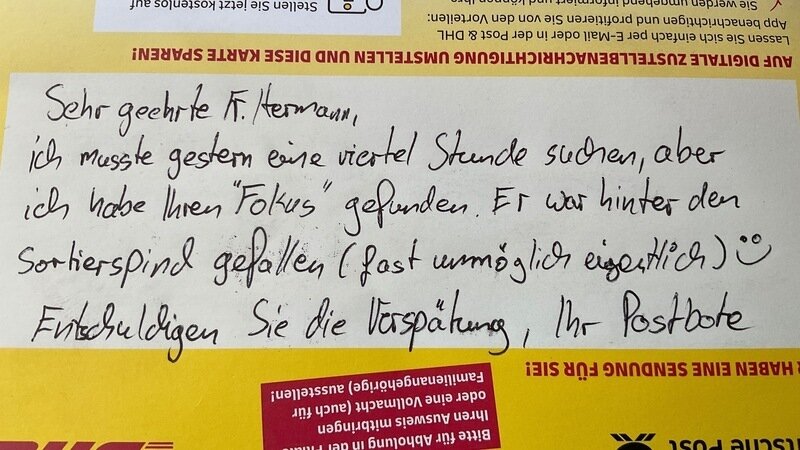 Sehr geehrte Fr. Hermann,
ich musste gestern eine viertel Stunde suchen, aber
ich habe Ihren "Fokus" gefunden. Er war hinter den
Sortierspind gefallen (fast unmöglich eigentlich)
Entschuldigen Sie die Verspätung, Ihr Postbote
tsche Post
DHL
Bitte für Abholung in der
Ihren Ausweis mitbringen
oder eine Vollmacht (auch für
Familienangehörige) ausstellen!
HABEN EINE SENDUNG FÜR SIE!
AUF DIGITALE ZUSTELLBENACHRICHTIGUNG UMSTELLEN UND DIESE KARTE SPAREN!
Lassen Sie sich einfach per E-Mail oder in der Post & DHL
App benachrichtigen und profitieren Sie von den Vorteilen:
Sie werden umgehend informiert und können Ihre
Stellen Sie jetzt kostenlos auf